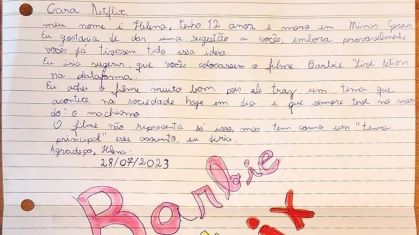 Cara Netflix
meu nome é Helena, tenho 12 anos e moro em Minas Gerais
Eu gostaria de dar uma sugestão a vocês, embora provavelmente
vocês já tiveram tido essa ideia.
Eu iria sugerir, que vocês colocassem o filme Barbie Live Action
na plataforma.
Eu achei o filme muito bom, pois ele traz um tema que
acontece na sociedade hoje em dia e que sempre teve no mun-
do: o machismo.
O filme não representa só isso, mas tem como um "tema
principal" esse assunto, eu diria.
Agradeço, Helena.
28/07/2023
Barbie
ix